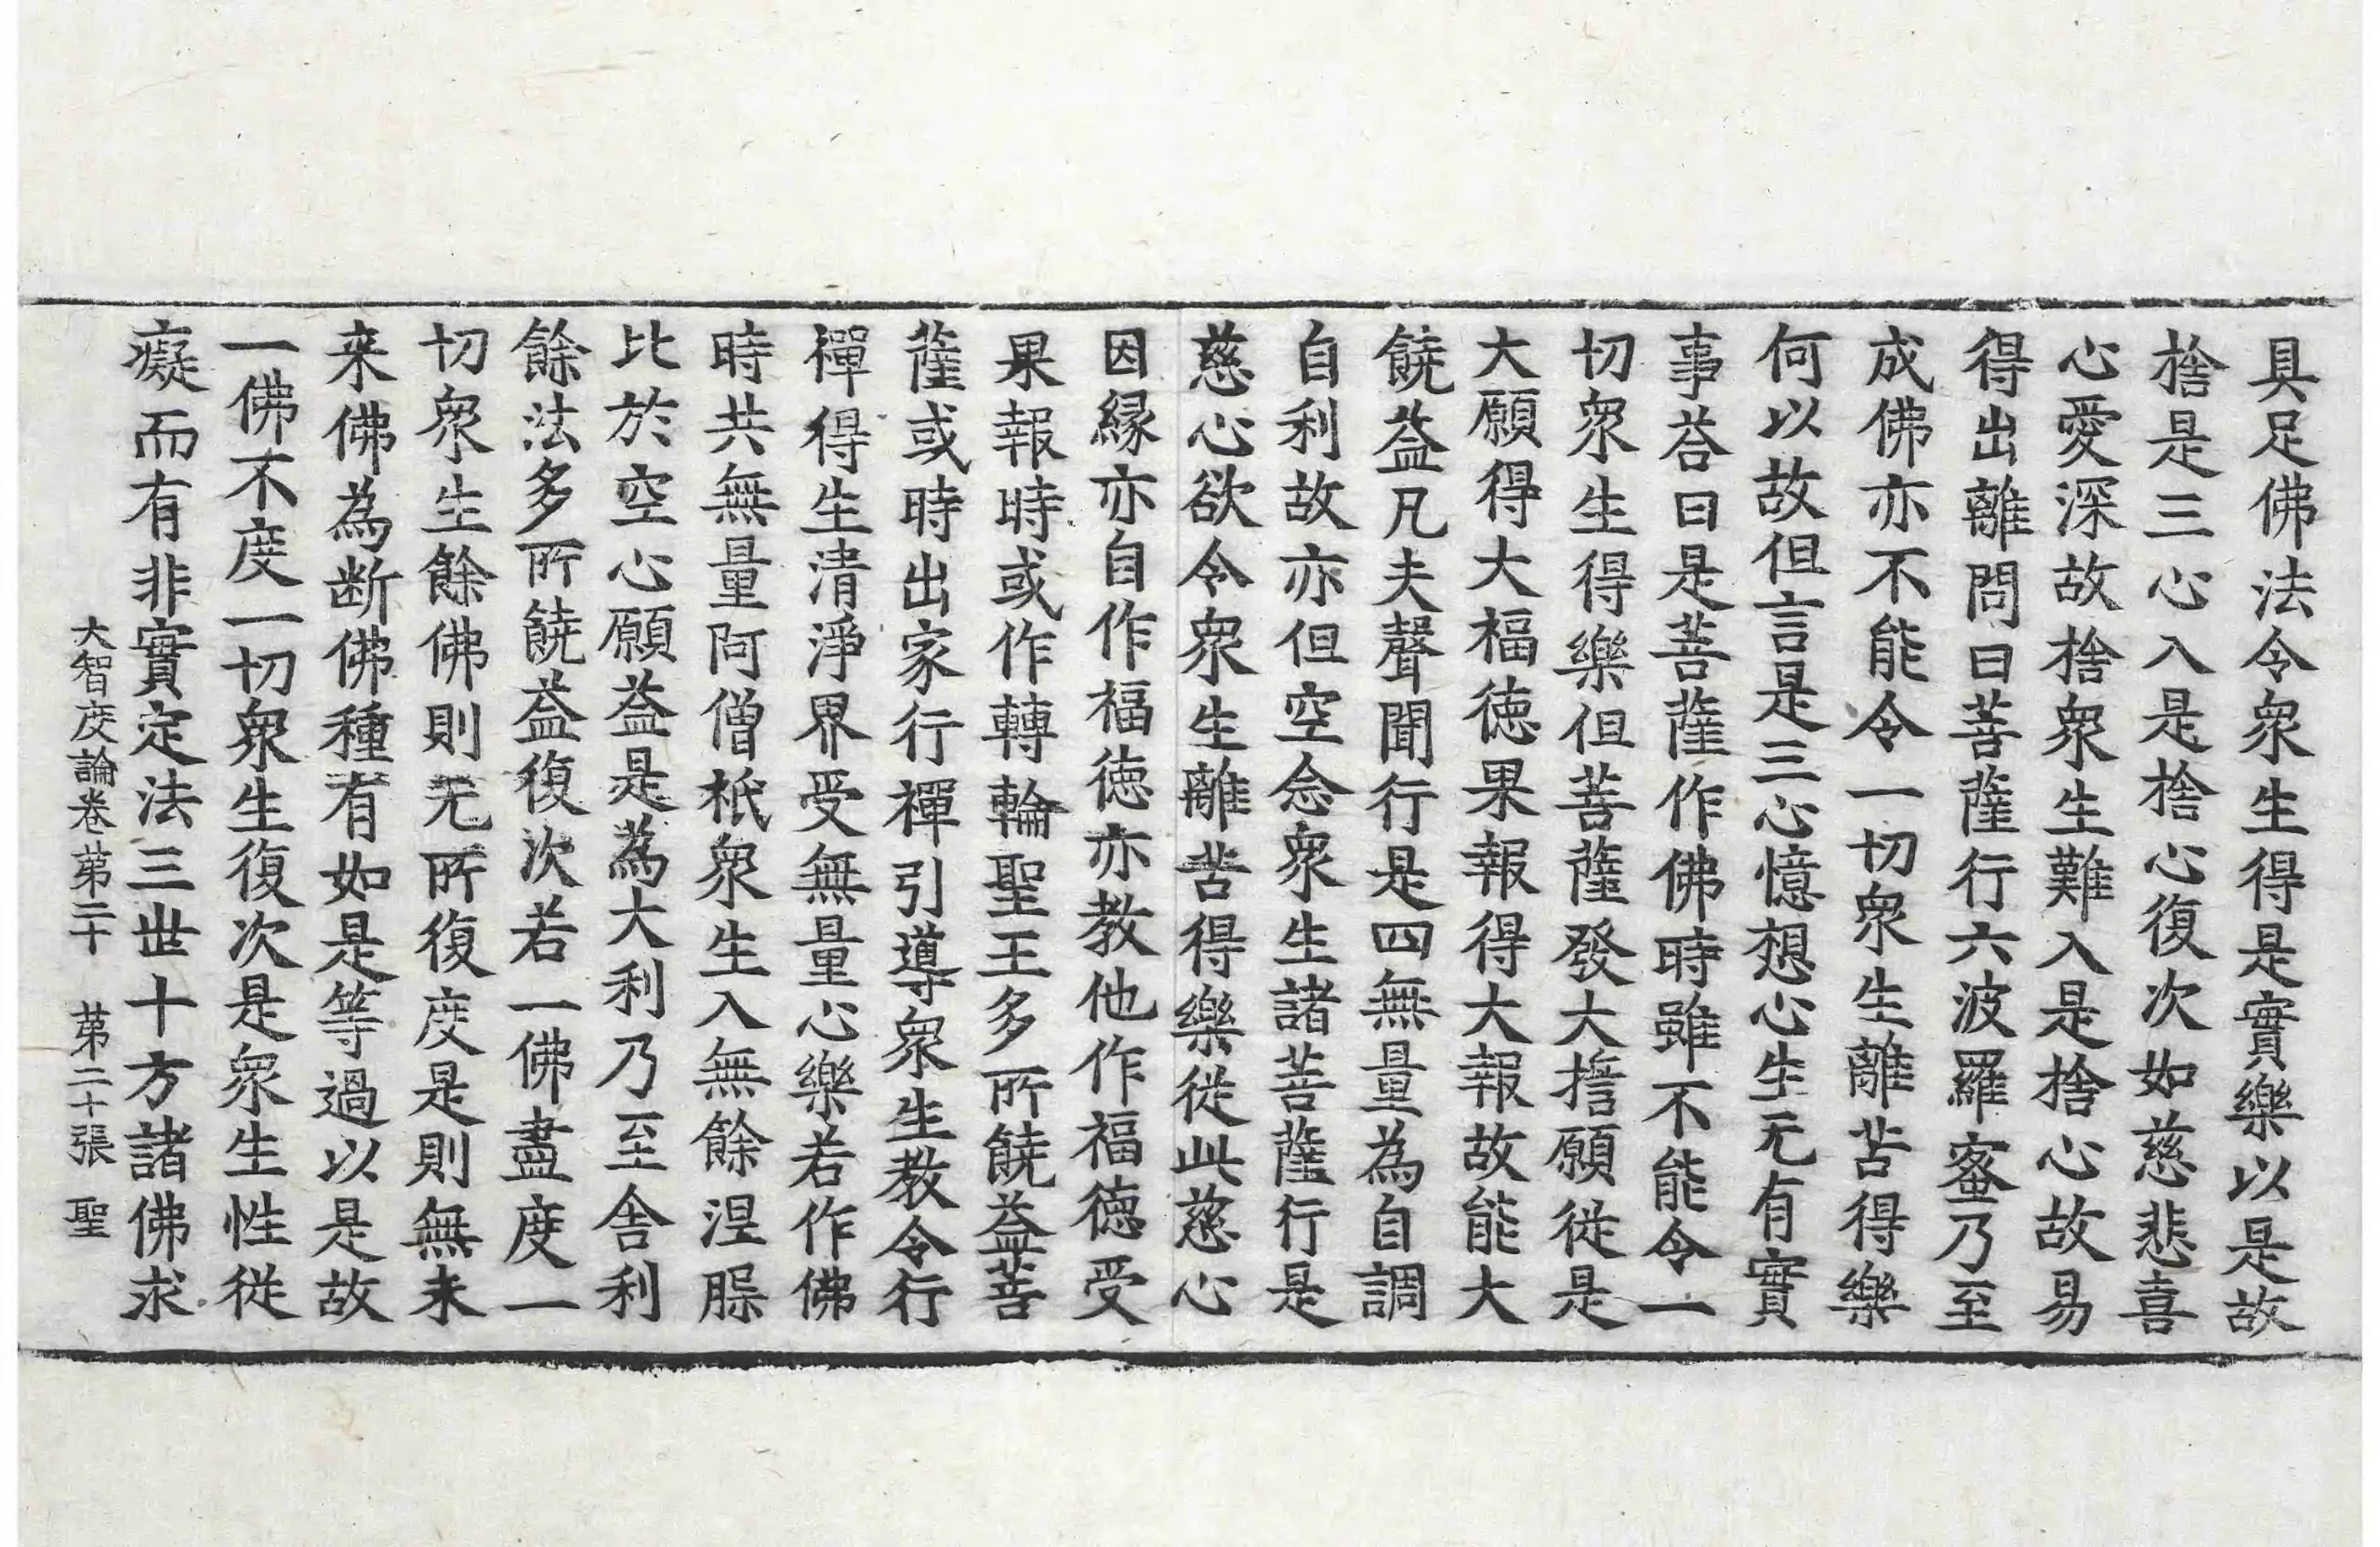 具足佛法令衆生得是實樂以是故
捨是三心入是捨心復次如慈悲喜
心愛深故捨衆生難入是捨心故易
得出離問曰菩薩行六波羅蜜乃至
成佛亦不能令一切衆生離苦得樂
何以故但言是三心憶想心生无有實
事荅曰是菩薩作佛時雖不能令一
切衆生得樂但菩薩發大擔願從是
大願得大福德果報得大報故能大
饒益凡夫聲聞行是四無量為自調
自利故亦但空念衆生諸菩薩行是
慈心欲令衆生離苦得樂從此慈心
因緣亦自作福德亦教他作福德受
果報時或作轉輪聖王多所饒益菩
薩或時出家行禪引導衆生教令行
禪得生清淨界受無量心樂若作佛
時共無量阿僧祇衆生入無餘涅槃
比於空心願益是為大利乃至舍利
餘法多所饒益復次若一佛盡度一
切衆生餘佛則无所復度是則無未
来佛為断佛種有如是等過以是故
一佛不度一切衆生復次是衆生性從
癡而有非實定法三世十方諸佛求
大智度論卷苐二十 苐二十張 聖